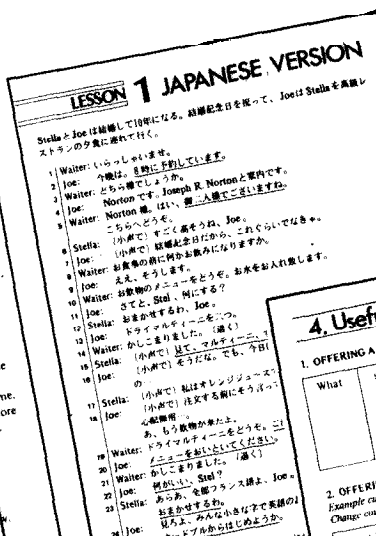 LESSON 1 JAPANESE VERSION
StellaとJoeは結婚して10年になる。結婚記念日を祝って、JoeはStellaを高級レ
ストランの夕食に連れて行く。
1 Waiter: いらっしゃいませ。
2 Joe: 今晩は。8時に予約しています。
3 Waiter: どちら様でしょうか。
4 Joe: Nortonです。Joseph R. Nortonと家内です。
5 Waiter: Norton様。はい、御二人様でございますね。
こちらへどうぞ。
6 Stella: (小声で) すごく高そうね、Joe。
7 Joe: (小声で) 結婚記念日だから、これぐらいでなきゃ。
8 Waiter: お食事の前に何かお飲みになりますか。
9 Joe: ええ、そうします。
10 Waiter: お飲物のメニューをどうぞ。お水をお入れ致します。
11 Joe: さてと、Stel、何にする?
12 Stella: おまかせするわ、Joe。
13 Joe: ドライマルティーニを二つ。
14 Waiter: かしこまりました。(退く)
15 Stella: (小声で) 見て、マルティーニ、
16 Joe: (小声で) そうだな。でも、今日
の
17 Stella: (小声で) 私はオレンジジュース
18 Joe: (小声で) 注文する前にそう言っ
心配無用
あ、もう飲物が来たよ。
19 Waiter: ドライマルティーニをどうぞ。
20 Joe: メニューをおいといてください。
21 Waiter: かしこまりました。(退く)
22 Joe: 何がいい、Stel?
23 Stella: あらあ、全部フランス語よ、Joe。
おまかせするわ。
24 Joe: 見ろよ、みんな小さな字で英語の
ードブルからはじめようか。
4. Usef
1. OFFERING A
What
2. OFFERI
Example cu
Change con
me.
ore
w.